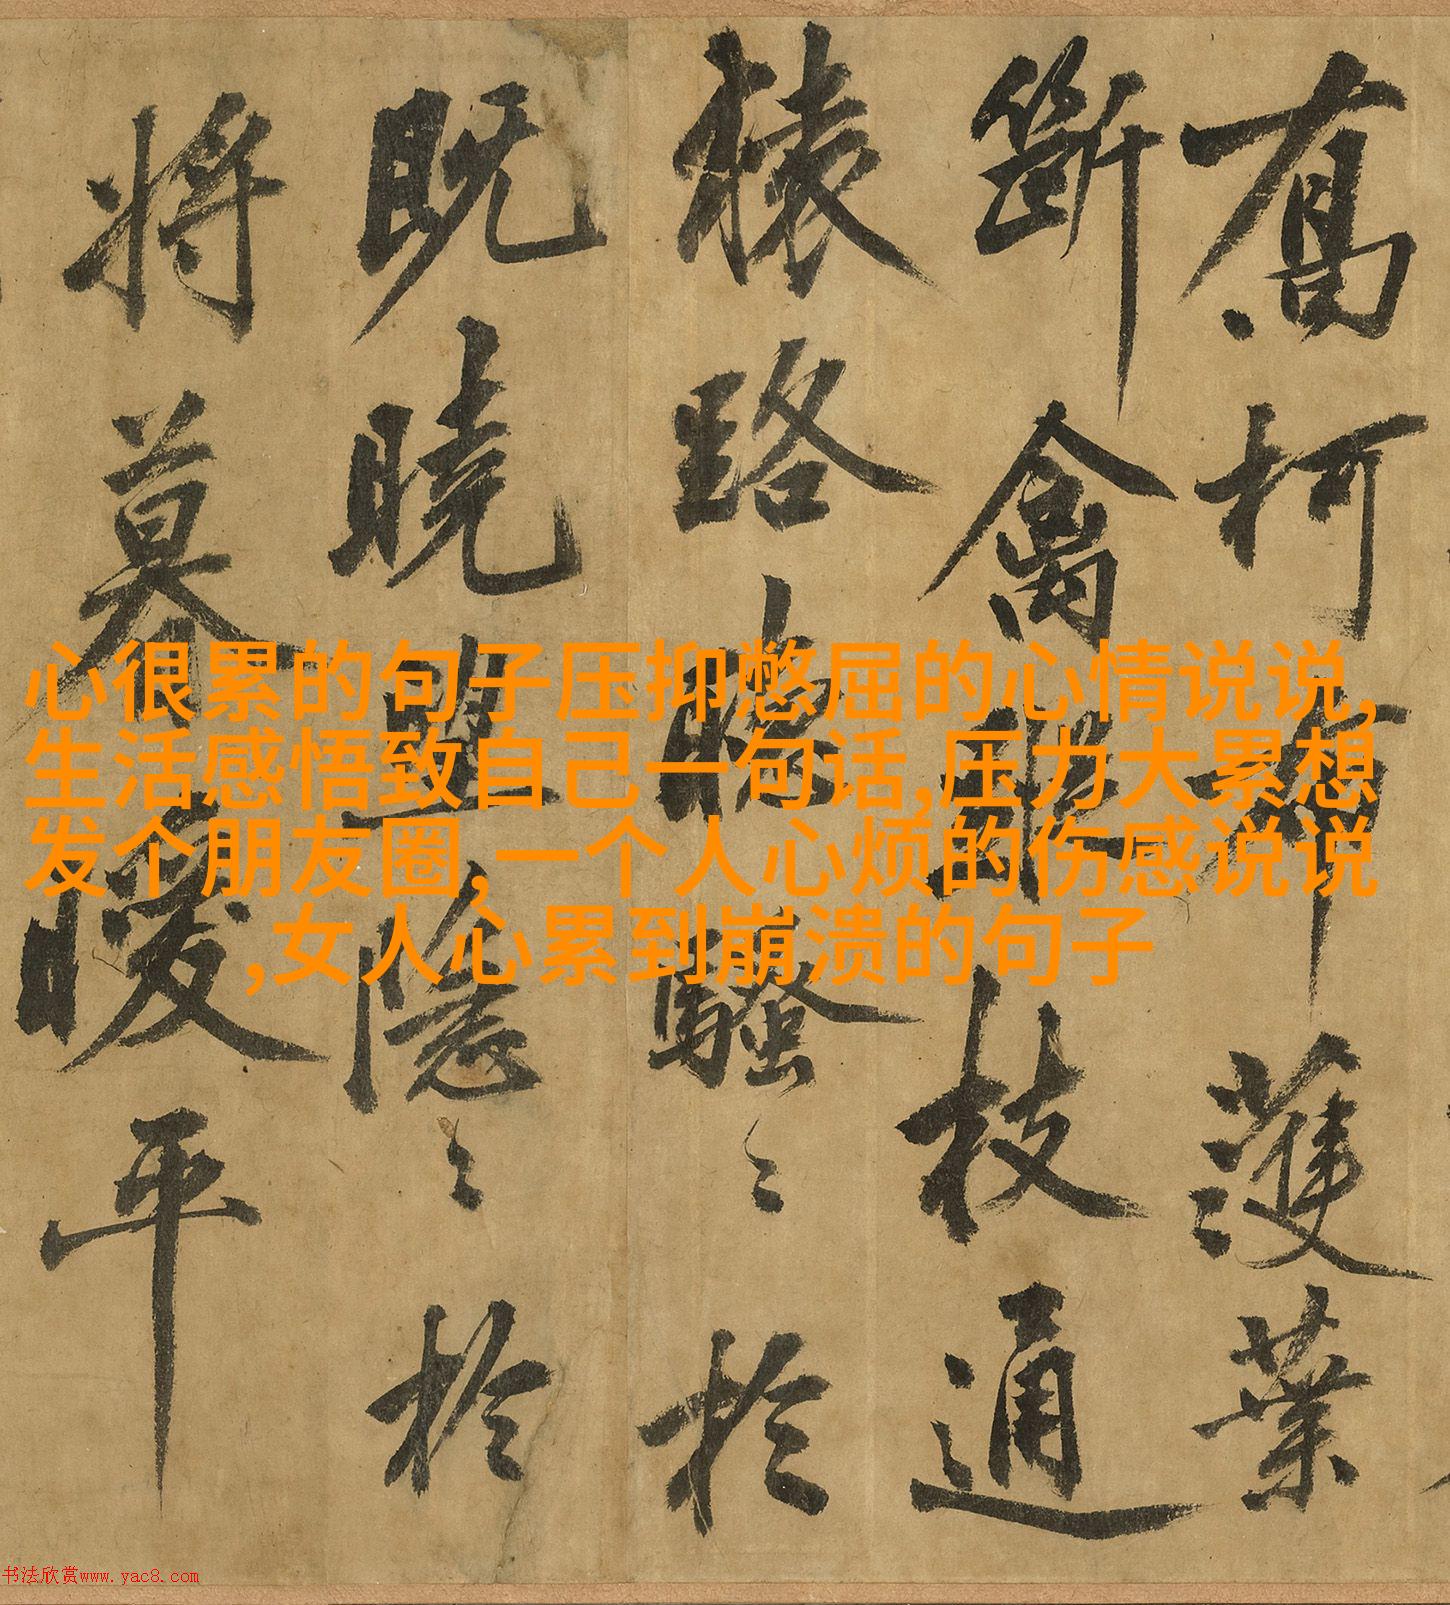 喬柯布濩葉
斷禽枝通
猿路騷〻於
既曉隱〻於
將暮平
心很累的句子压抑憋屈的心情说说,
生活感悟致自己一句话,压力大累想
发个朋友圈,一个人心烦的伤感说说
,女人心累到崩溃的句子
书法欣赏www.yac8.com